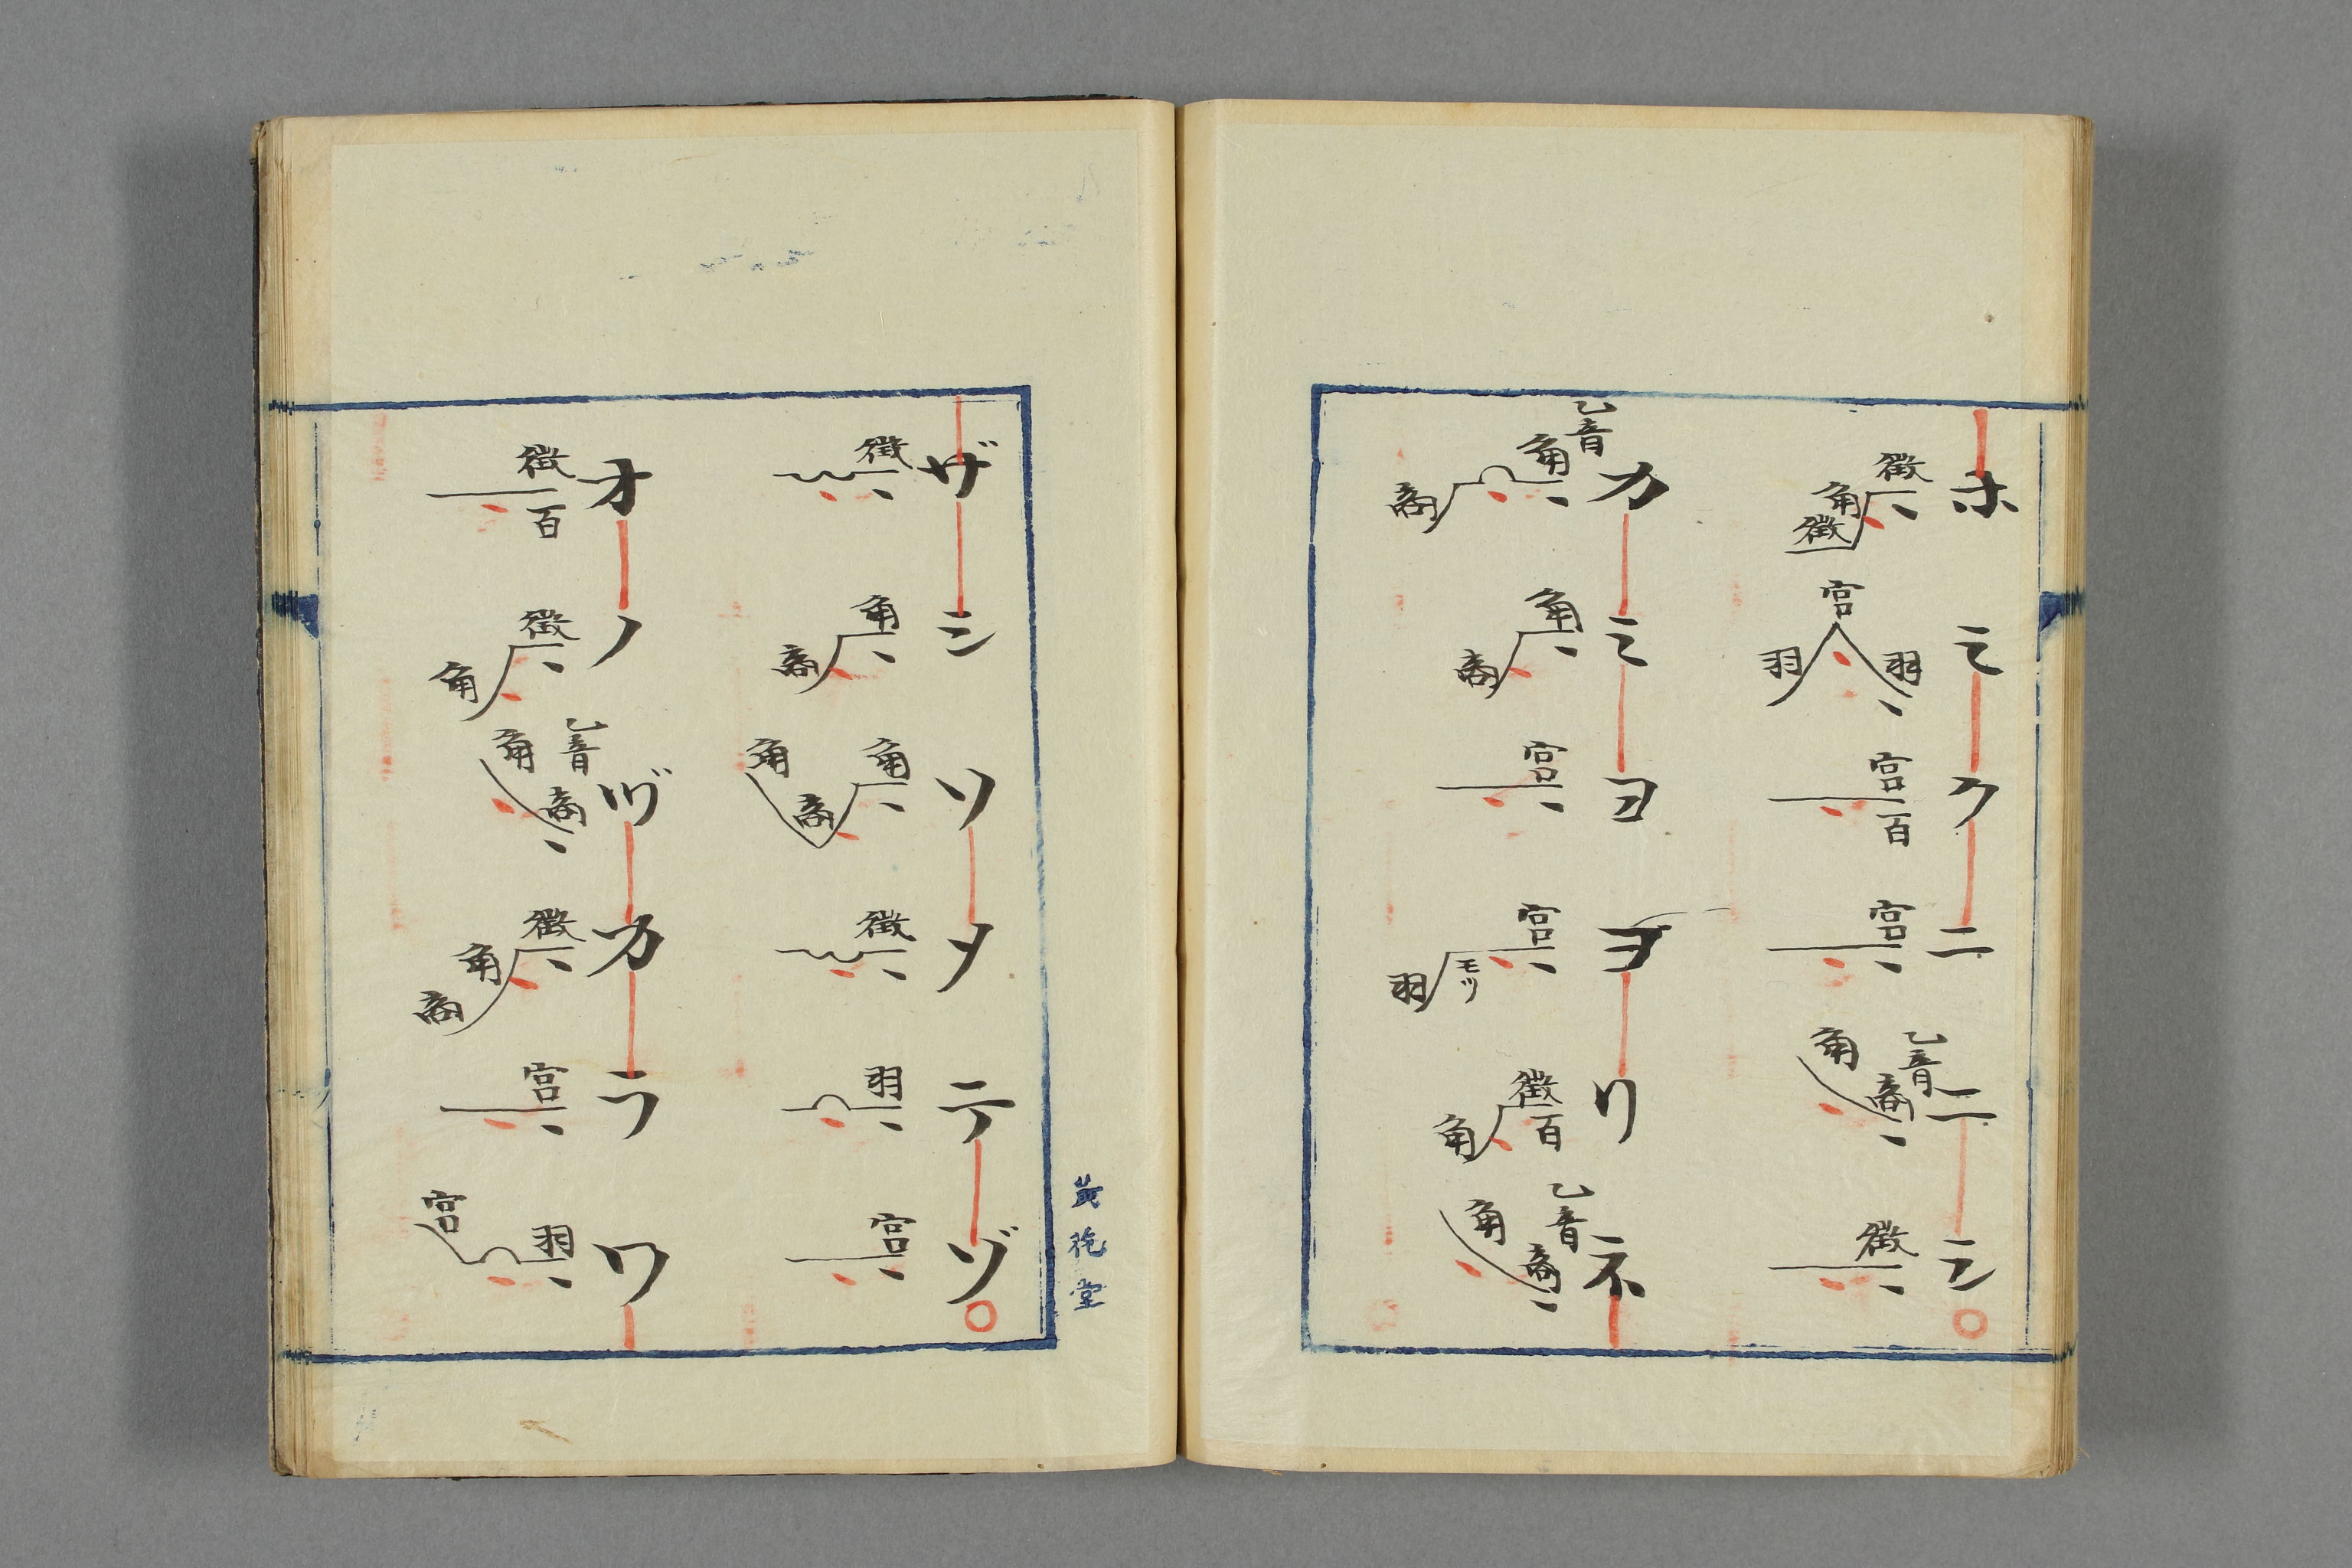 ホミクニニシ
徴角徴 羽宮羽 宮百 宮 乙音商角 徴
カミヨヨリネ
乙音角商 角商 宮 宮モツ羽 徴百角 乙音商角
黄袍堂
ザシソメテゾ
徴 角商 角商角 徴 羽 宮
オノヅカラワ
徴百 徴角 乙音商角 徴角商 宮 羽宮